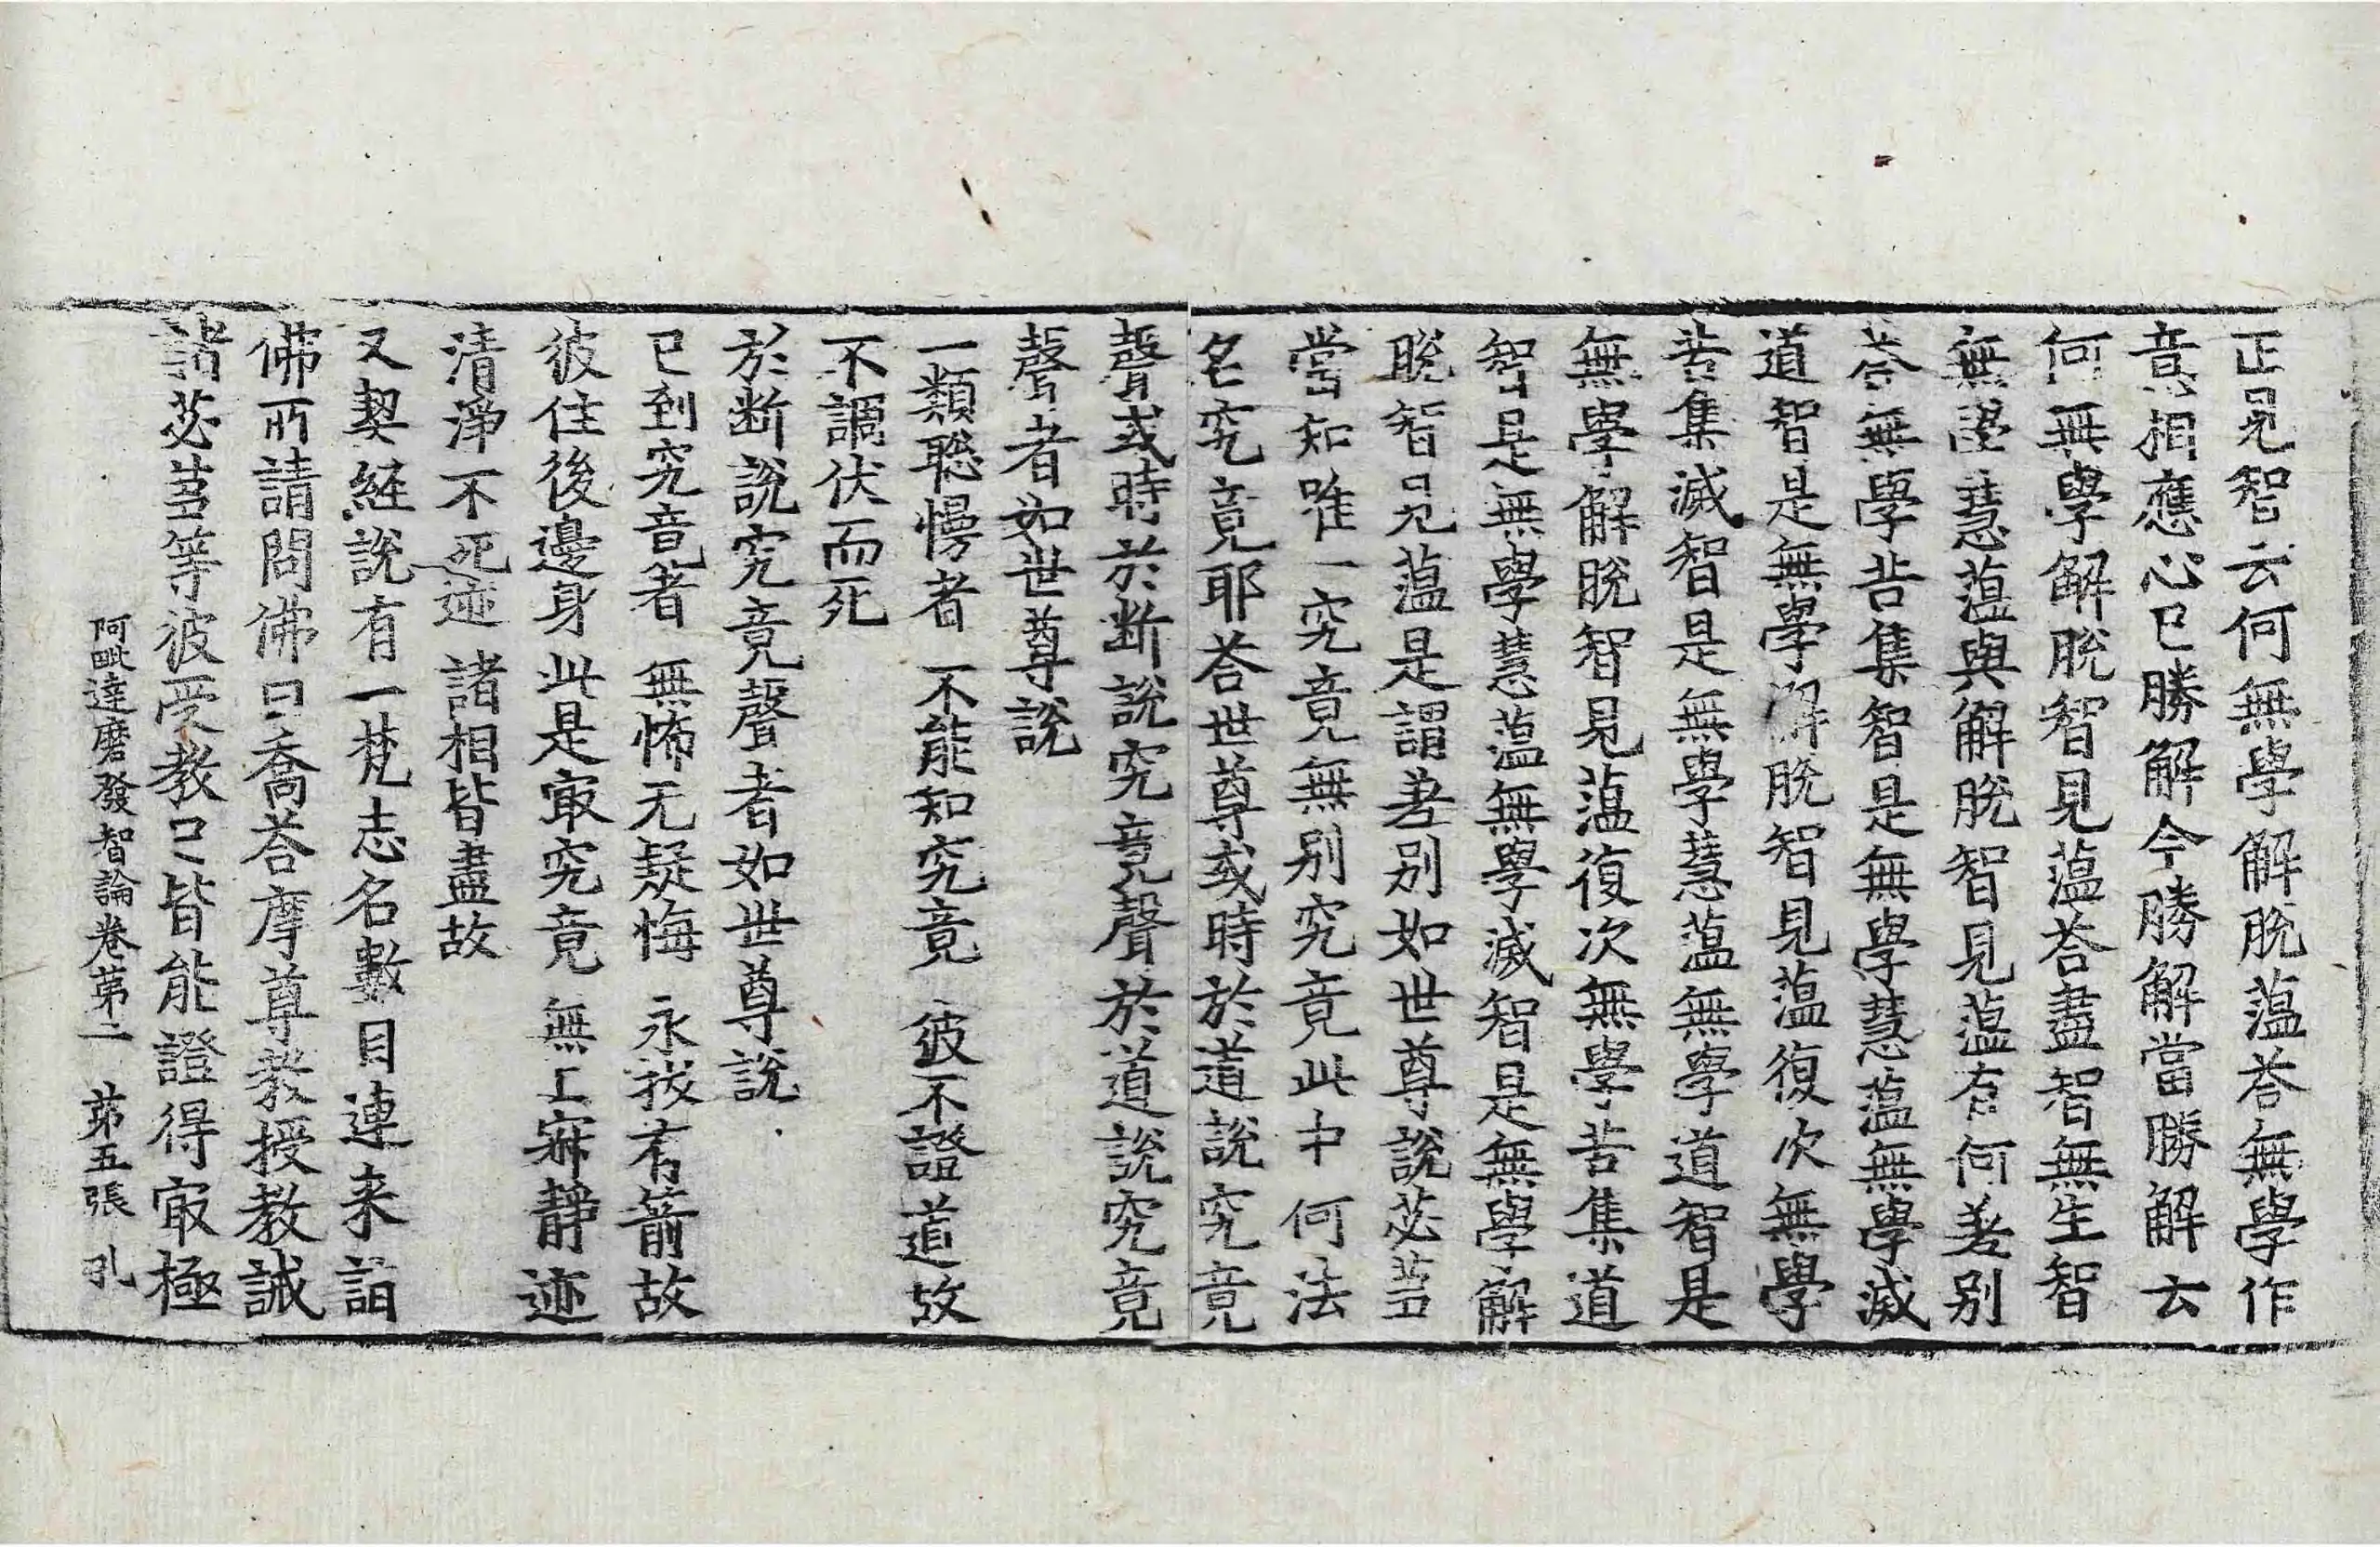 正見智云何無學解脫蘊荅無學作
意相應心已勝解今勝解當勝解云
何無學解脫智見蘊荅盡智無生智
無學慧蘊與解脫智見蘊有何差別
荅無學苦集智是無學慧蘊無學滅
道智是無學解脫智見蘊復次無學
苦集滅智是無學慧蘊無學道智是
無學解脫智見蘊復次無學苦集道
智是無學慧蘊無學滅智是無學解
脫智見蘊是謂差別如世尊說苾芻
當知唯一究竟無別究竟此中何法
名究竟耶荅世尊或時於道說究竟
聲或時於斷說究竟聲於道說究竟
聲者如世尊說
一類聡慢者 不能知究竟 彼不證道故
不調伏而死
於斷說究竟聲者如世尊說
已到究竟者 無怖无疑悔 永拔有箭故
彼住後邊身 此是㝡究竟 無上寂靜迹
清淨不死迹 諸相皆盡故
又契經說有一梵志名數目連来詣
佛所請問佛曰喬荅摩尊教授教誡
諸苾芻等彼受教已皆能證得㝡極
阿毗達磨發智論卷第二 第五張 孔